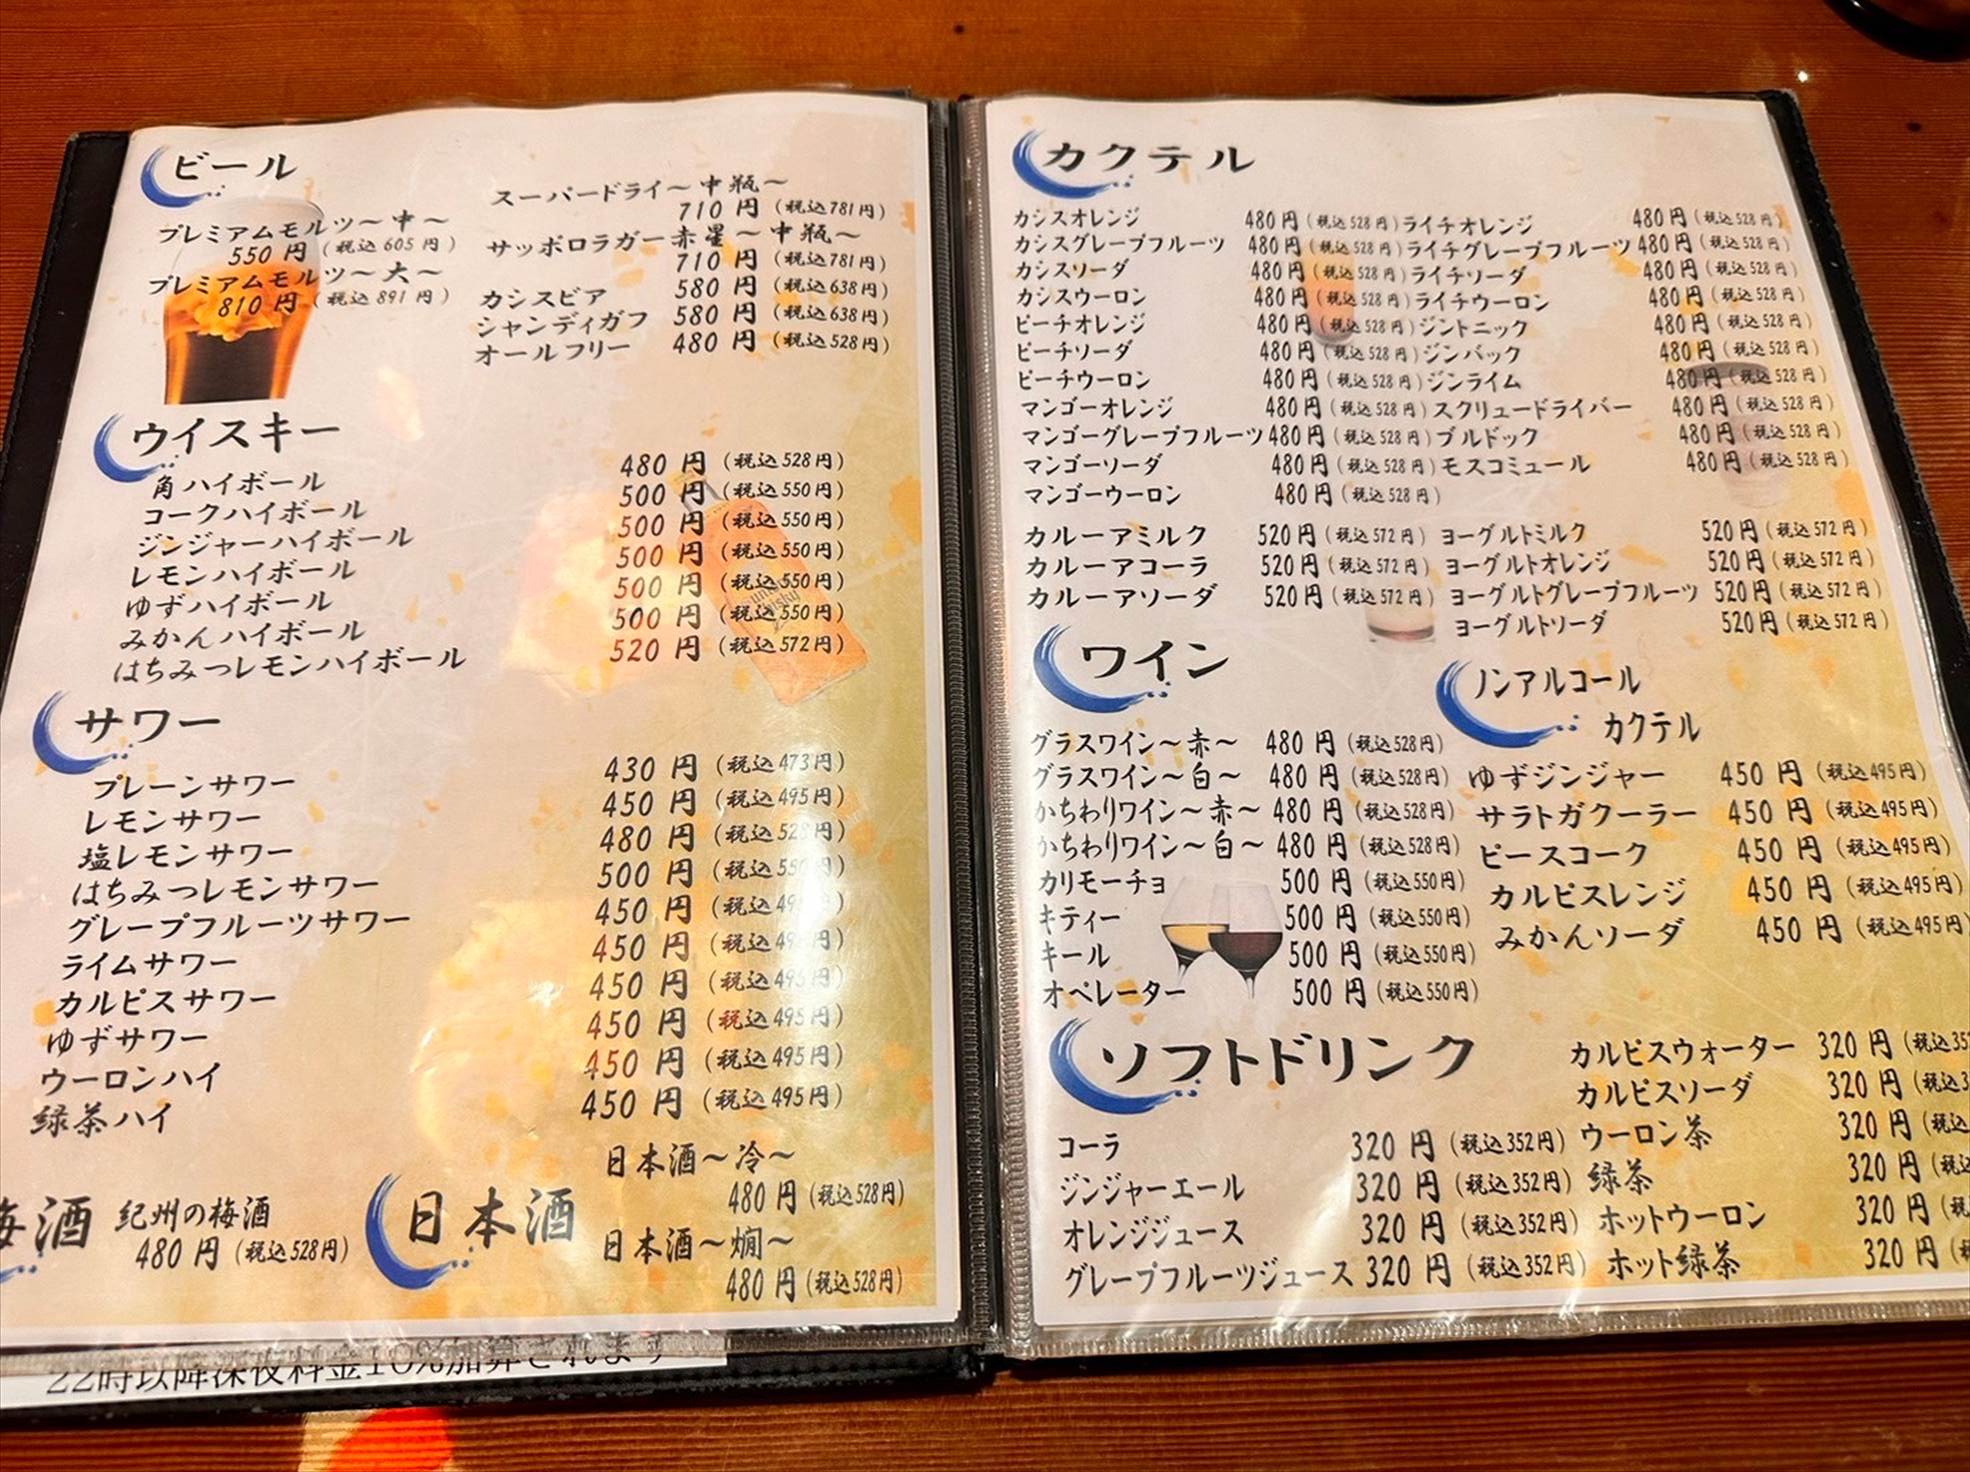 ビール
プレミアムモルツ～中～
550円（税込605円）
プレミアムモルツ～大～
810円（税込891円）
スーパードライ～中瓶～
710円（税込781円）
サッポロラガー赤星～中瓶～
710円（税込781円）
カシスビア 580円（税込638円）
シャンディガフ 580円（税込638円）
オールフリー 480円（税込528円）
ウイスキー
角ハイボール 480円（税込528円）
コークハイボール 500円（税込550円）
ジンジャーハイボール 500円（税込550円）
レモンハイボール 500円（税込550円）
ゆずハイボール 500円（税込550円）
みかんハイボール 500円（税込550円）
はちみつレモンハイボール 520円（税込572円）
サワー
プレーンサワー 430円（税込473円）
レモンサワー 450円（税込495円）
塩レモンサワー 480円（税込528円）
はちみつレモンサワー 500円（税込550円）
グレープフルーツサワー 450円（税込495円）
ライムサワー 450円（税込495円）
カルピスサワー 450円（税込495円）
ゆずサワー 450円（税込495円）
ウーロンハイ 450円（税込495円）
緑茶ハイ 450円（税込495円）
梅酒
紀州の梅酒
480円（税込528円）
日本酒
日本酒～冷～
480円（税込528円）
日本酒～燗～
480円（税込528円）
22時以降深夜料金10%加算されます
カクテル
カシスオレンジ 480円（税込528円）ライチオレンジ 480円（税込528円）
カシスグレープフルーツ 480円（税込528円）ライチグレープフルーツ 480円（税込528円）
カシスソーダ 480円（税込528円）ライチソーダ 480円（税込528円）
カシスウーロン 480円（税込528円）ライチウーロン 480円（税込528円）
ピーチオレンジ 480円（税込528円）ジントニック 480円（税込528円）
ピーチソーダ 480円（税込528円）ジンバック 480円（税込528円）
ピーチウーロン 480円（税込528円）ジンライム 480円（税込528円）
マンゴーオレンジ 480円（税込528円）スクリュードライバー 480円（税込528円）
マンゴーグレープフルーツ 480円（税込528円）ブルドック 480円（税込528円）
マンゴーソーダ 480円（税込528円）モスコミュール 480円（税込528円）
マンゴーウーロン 480円（税込528円）
カルーアミルク 520円（税込572円）ヨーグルトミルク 520円（税込572円）
カルーアコーラ 520円（税込572円）ヨーグルトオレンジ 520円（税込572円）
カルーアソーダ 520円（税込572円）ヨーグルトグレープフルーツ 520円（税込572円）
ヨーグルトソーダ 520円（税込572円）
ワイン
グラスワイン～赤～ 480円（税込528円）
グラスワイン～白～ 480円（税込528円）
かちわりワイン～赤～ 480円（税込528円）
かちわりワイン～白～ 480円（税込528円）
カリモーチョ 500円（税込550円）
キティー 500円（税込550円）
キール 500円（税込550円）
オペレーター 500円（税込550円）
ノンアルコール
カクテル
ゆずジンジャー 450円（税込495円）
サラトガクーラー 450円（税込495円）
ピースコーク 450円（税込495円）
カルピスレンジ 450円（税込495円）
みかんソーダ 450円（税込495円）
ソフトドリンク
コーラ 320円（税込352円）
ジンジャーエール 320円（税込352円）
オレンジジュース 320円（税込352円）
グレープフルーツジュース 320円（税込352円）
カルピスウォーター 320円（税込35
カルピスソーダ 320円（税込3
ウーロン茶 320円（税込
緑茶 320円（税込
ホットウーロン 320円（税
ホット緑茶 320円（